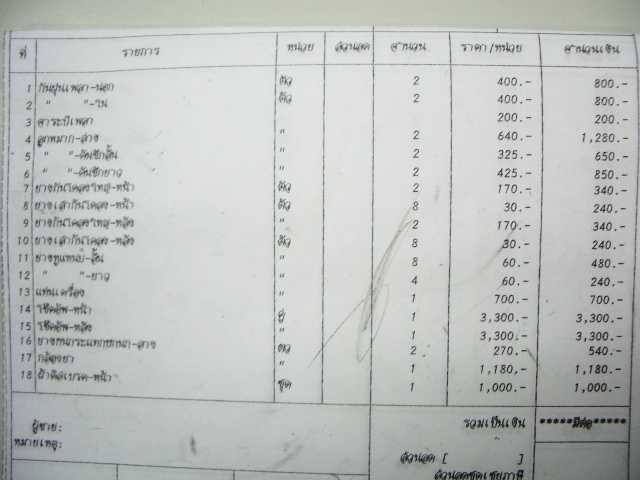 ที่ รายการ หน่วย ส่วนลด จำนวน ราคา/หน่วย จำนวนเงิน
1 กันฝุ่นเพลา-นอก ตัว 2 400.- 800.-
2 " "-ใน ตัว 2 400.- 800.-
3 จาระบีเพลา 200.- 200.-
4 ลูกหมาก-ล่าง " 2 640.- 1,280.-
5 " "-คันชักสั้น " 2 325.- 650.-
6 " "-คันชักยาว " 2 425.- 850.-
7 ยางกันโคลงใหญ่-หน้า ตัว 2 170.- 340.-
8 ยางเสากันโคลง-หน้า ตัว 8 30.- 240.-
9 ยางกันโคลงใหญ่-หลัง " 2 170.- 340.-
10 ยางเสากันโคลง-หลัง ตัว 8 30.- 240.-
11 ยางหูแหนบ-สั้น " 8 60.- 480.-
12 " "-ยาว " 4 60.- 240.-
13 แท่นเครื่อง " 1 700.- 700.-
14 โช๊คอัพ-หน้า คู่ 1 3,300.- 3,300.-
15 โช๊คอัพ-หลัง " 1 3,300.- 3,300.-
16 ตัว 2 270.- 540.-
17 กล่องยา " 1 1,180,- 1,180.-
18 ผ้าดิสเบรค-หน้า ชุด 1 1,000.- 1,000.-
ผู้ขาย: รวมเป็นเงิน *****มีต่อ*****
หมายเหตุ:
ส่วนลด [ ]
ส่วนลดชดเชยภาษี